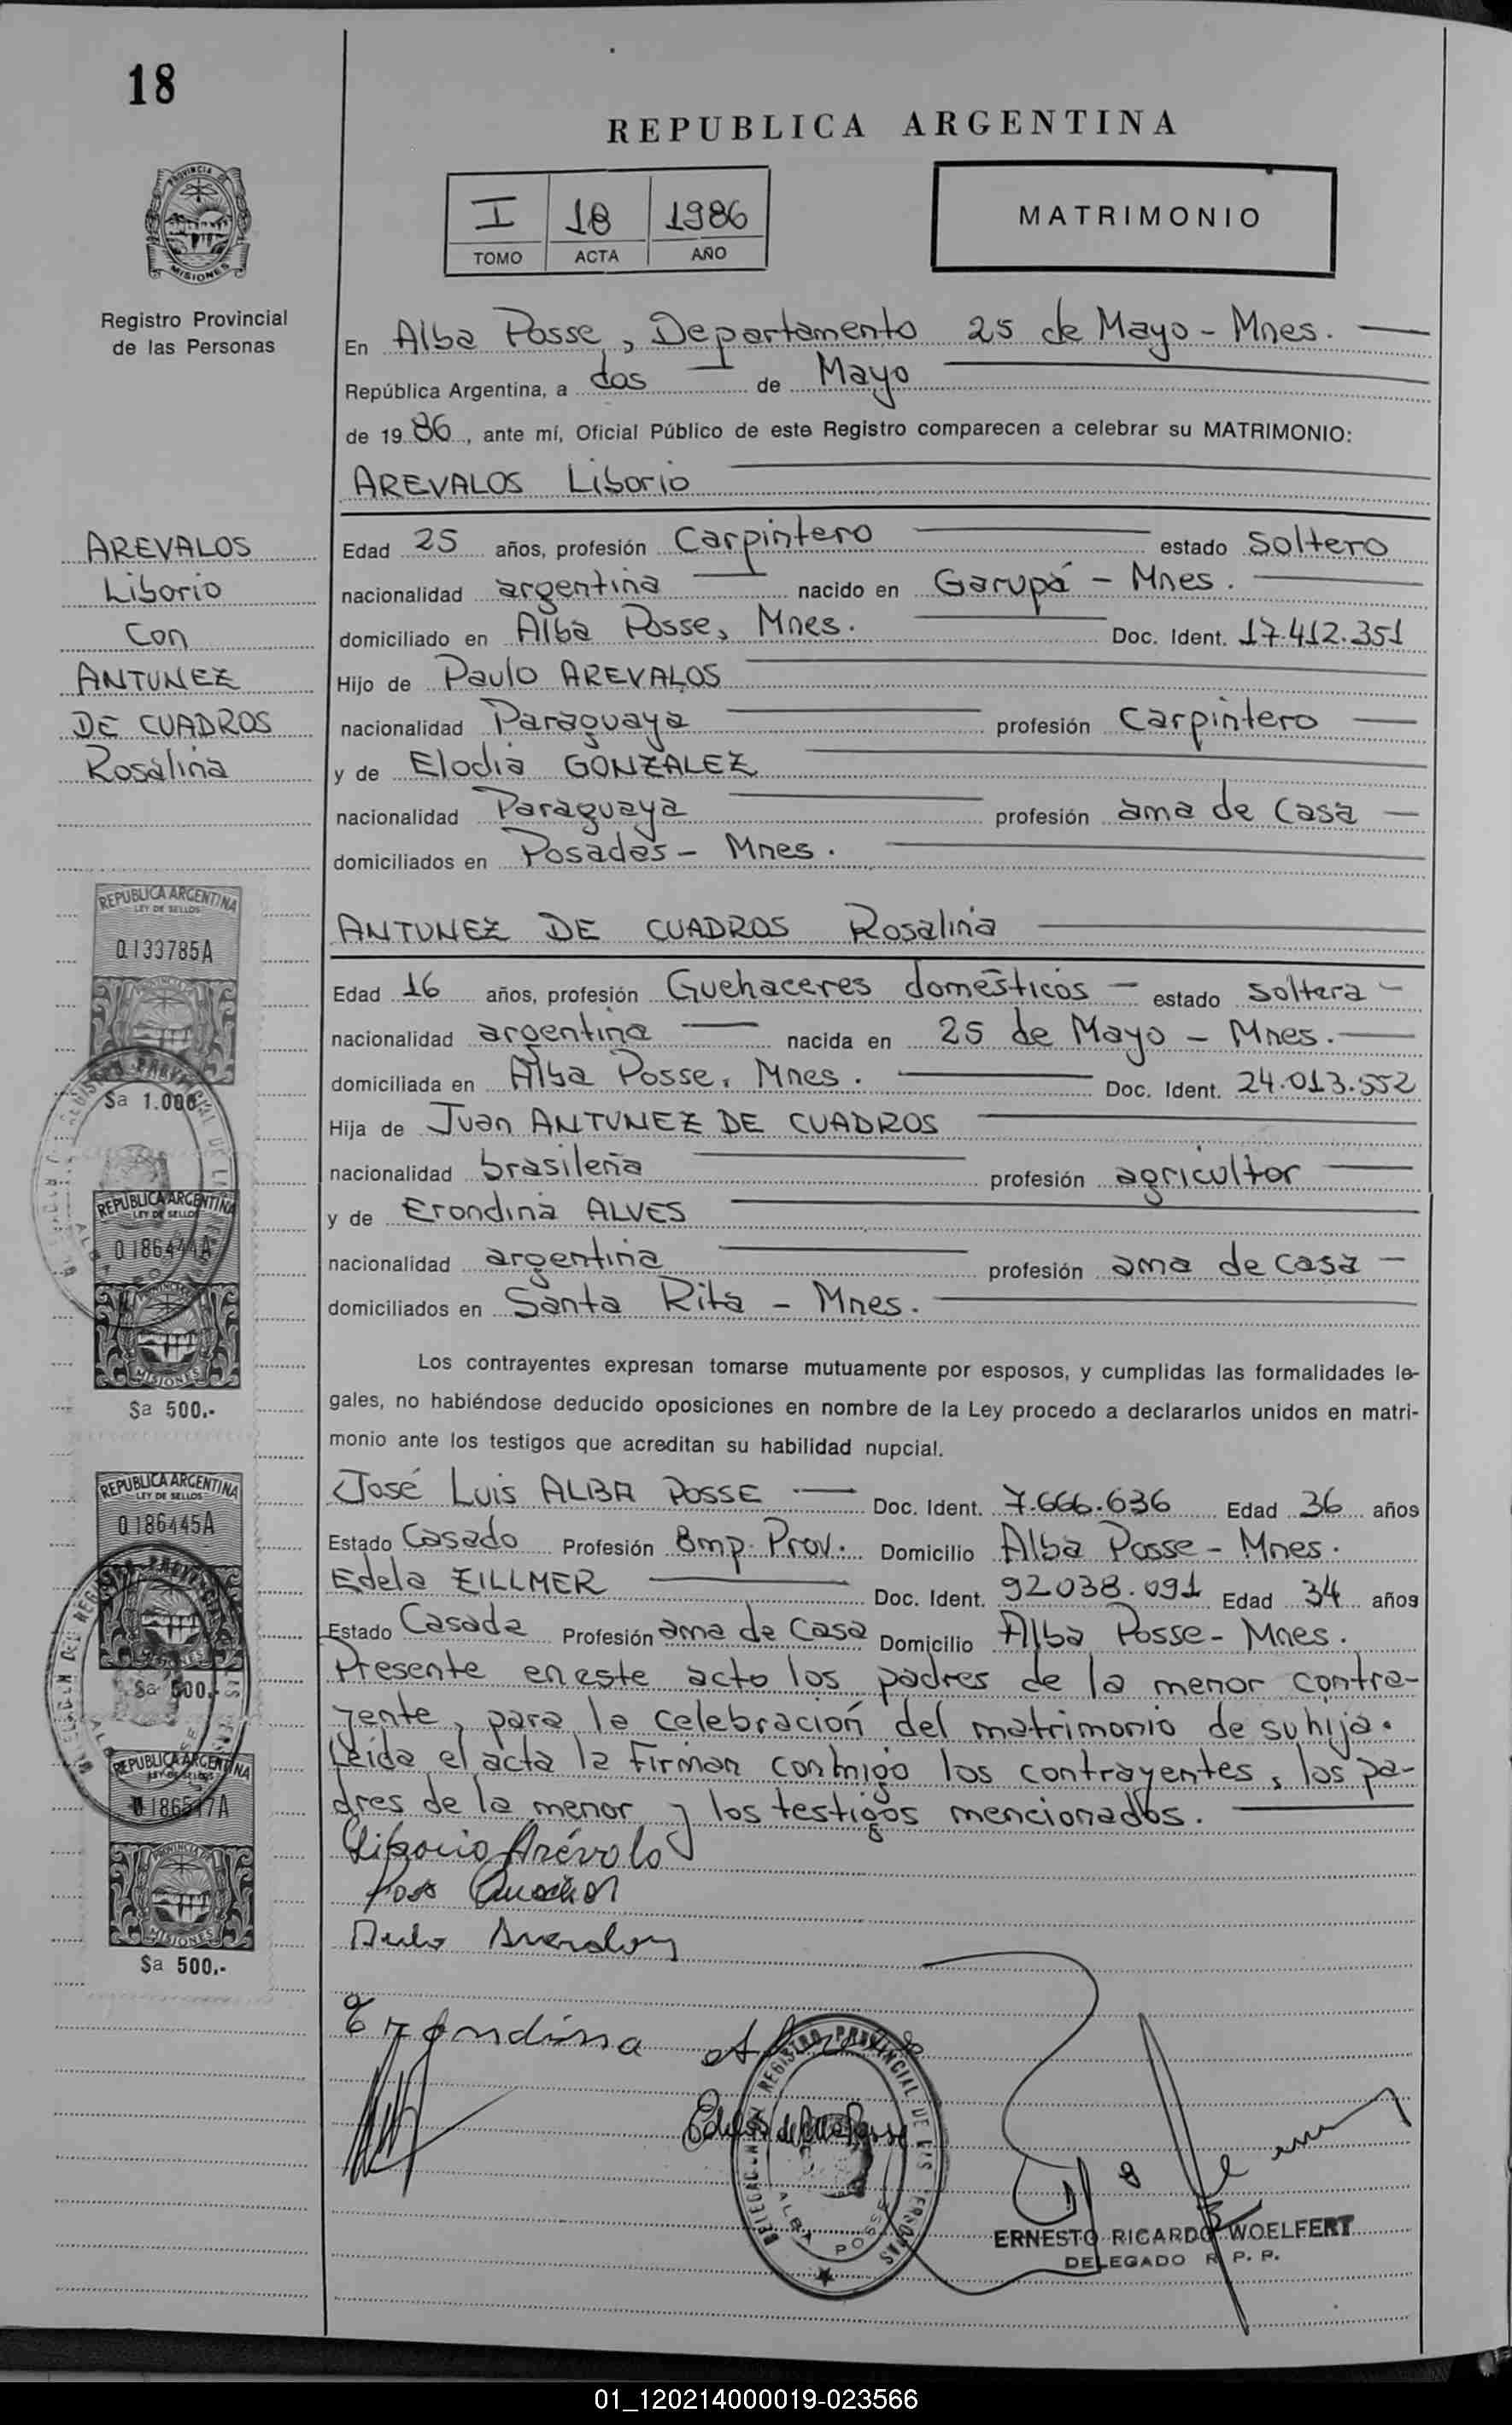 18
REPUBLICA ARGENTINA
I 18 1986
TOMO ACTA AÑO
MATRIMONIO
PROVINCIA DE
MISIONES
Registro Provincial
de las Personas
En Alba Posse, Departamento 25 de Mayo - Mnes.
República Argentina, a dos de Mayo
de 1986, ante mí, Oficial Público de este Registro comparecen a celebrar su MATRIMONIO:
AREVALOS Liborio
Edad 25 años, profesión Carpintero estado soltero
nacionalidad argentina nacido en Garupá - Mnes.
domiciliado en Alba Posse, Mnes. Doc. Ident. 17.412.351
Hijo de Paulo AREVALOS
nacionalidad Paraguaya profesión Carpintero
y de Elodia GONZALEZ
nacionalidad Paraguaya profesión ama de casa
domiciliados en Posadas - Mnes.
AREVALOS
Liborio
Con
ANTUNEZ
DE CUADROS
Rosalina
ANTUNEZ DE CUADROS Rosalina
Edad 16 años, profesión Quehaceres domésticos estado soltera
nacionalidad argentina nacida en 25 de Mayo - Mnes.
domiciliada en Alba Posse, Mnes. Doc. Ident. 24.013.552
Hija de Juan ANTUNEZ DE CUADROS
nacionalidad brasileña profesión agricultor
y de Erondina ALVES
nacionalidad argentina profesión ama de casa
domiciliados en Santa Rita - Mnes.
Los contrayentes expresan tomarse mutuamente por esposos, y cumplidas las formalidades le-
gales, no habiéndose deducido oposiciones en nombre de la Ley procedo a declararlos unidos en matri-
monio ante los testigos que acreditan su habilidad nupcial.
José Luis ALBA POSSE Doc. Ident. 7.666.636 Edad 36 años
Estado Casado Profesión Emp. Prov. Domicilio Alba Posse - Mnes.
Edela ZILLMER Doc. Ident. 92038.091 Edad 34 años
Estado Casada Profesión ama de casa Domicilio Alba Posse - Mnes.
Presente en este acto los padres de la menor contra-
yente, para la celebración del matrimonio de su hija.
Leida el acta la firman conmigo los contrayentes, los pa-
dres de la menor y los testigos mencionados.
Liborio Arévalo
Erondina
REPUBLICA ARGENTINA
LEY DE SELLOS
0133785A
$a 1.000
REPUBLICA ARGENTINA
LEY DE SELLOS
MISIONES
$a 500.-
REPUBLICA ARGENTINA
LEY DE SELLOS
0186445A
$a 500.-
REPUBLICA ARGENTINA
LEY DE SELLOS
MISIONES
$a 500.-
REGISTRO PROVINCIAL DE LAS PERSONAS
ALBA POSSE
ERNESTO RICARDO WOELFERT
DELEGADO R. P. P.
01_120214000019-023566